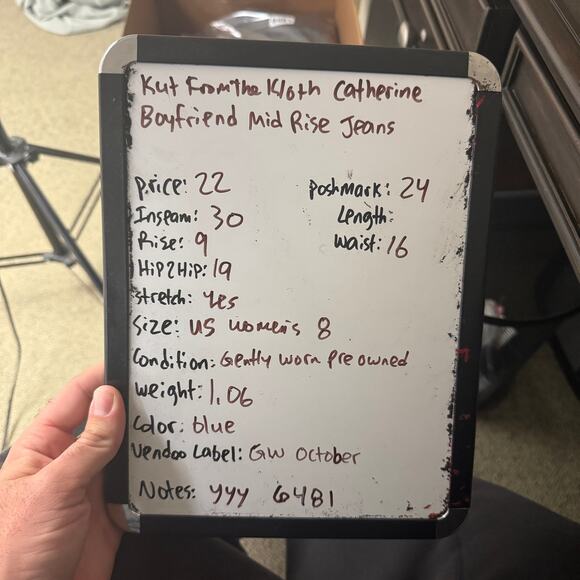 Kut From the Kloth Catherine
Boyfriend Mid Rise Jeans
price: 22
Poshmark: 24
Inseam: 30
Length:
Rise: 9
Waist: 16
Hip2Hip: 19
stretch: yes
Size: US women's 8
Condition: Gently worn pre owned
weight: 1.06
Color: blue
Vendoo Label: GW October
Notes: yyy 6481